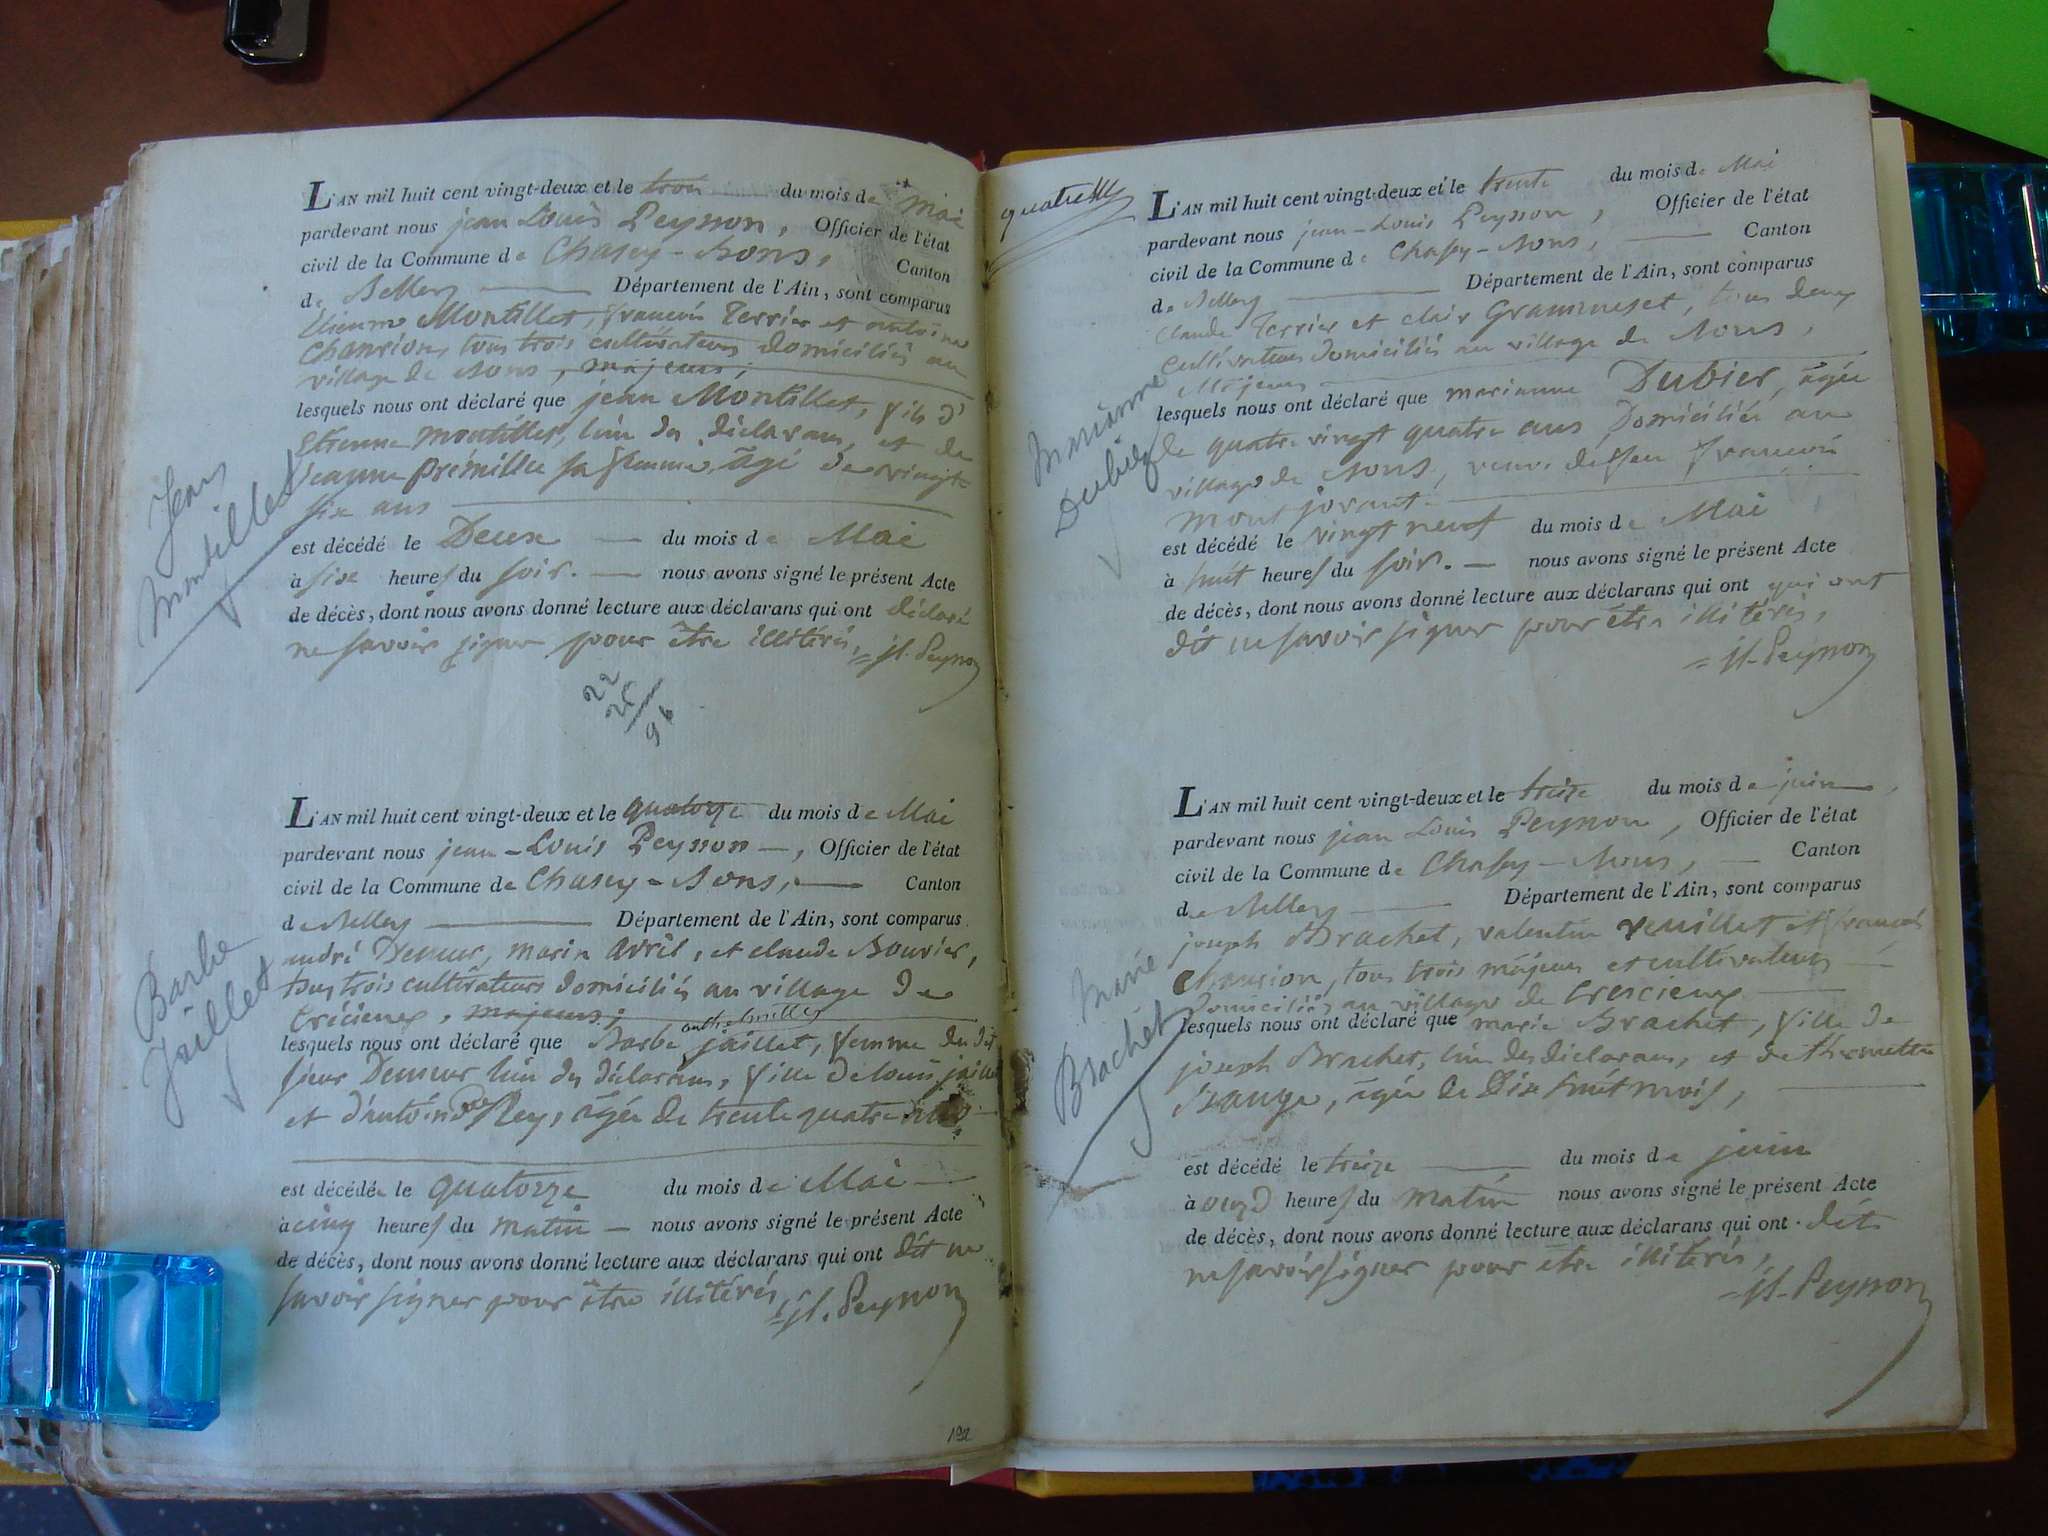 L'AN mil huit cent vingt-deux et le trois du mois de Mai
pardevant nous jean Louis Peysson, Officier de l'état
civil de la Commune de Chasey-Bons, Canton
de Belley Département de l'Ain, sont comparus
Etienne Montillet, françois Terrier et antoine
Chanrion, tous trois cultivateurs domiciliés au
village de Bons, majeurs,
lesquels nous ont déclaré que jean Montillet, fils d'
Etienne Montillet, l'un des déclarans, et de
Jeanne prémillieu sa femme, âgé de vingt
six ans
est décédé le Deux du mois de Mai
à six heures du soir. nous avons signé le présent Acte
de décès, dont nous avons donné lecture aux déclarans qui ont déclaré
ne savoir signer pour être illitérés, = jl. Peysson
Jean
Montillet
22
96
L'AN mil huit cent vingt-deux et le quatorze du mois de Mai
pardevant nous jean-Louis Peysson, Officier de l'état
civil de la Commune de Chasey-Bons, Canton
de Belley Département de l'Ain, sont comparus
andré Demeur, marin avril, et claude Bouvier,
tous trois cultivateurs domiciliés au village de
Crécieux, majeurs;
lesquels nous ont déclaré que Barbe jaillet, femme du dit
sieur Demeur l'un des déclarans, fille de louis jaillet
et d'antoinette Rey, âgée de trente quatre ans
est décédée le quatorze du mois de Mai
à cinq heures du matin nous avons signé le présent Acte
de décès, dont nous avons donné lecture aux déclarans qui ont dit ne
savoir signer pour être illitérés, = jl. Peysson
Barbe
Jaillet
192
quatre
L'AN mil huit cent vingt-deux et le trente du mois de Mai
pardevant nous jean-Louis Peysson, Officier de l'état
civil de la Commune de Chasey-Bons, Canton
de Belley Département de l'Ain, sont comparus
Claude Terrier et clair Grammuset, tous deux
cultivateurs domiciliés au village de Bons,
Majeurs
lesquels nous ont déclaré que marianne Dubier, âgée
de quatre vingt quatre ans Domiciliée au
village de Bons, veuve de feu françois
mont jovant.
est décédé le vingt neuf du mois de Mai
à huit heures du soir. nous avons signé le présent Acte
de décès, dont nous avons donné lecture aux déclarans qui ont qui ont
dit ne savoir signer pour être illitérés,
= jl. Peysson
Marianne
Dubier
L'AN mil huit cent vingt-deux et le treize du mois de juin
pardevant nous jean Louis Peysson, Officier de l'état
civil de la Commune de Chasey-Bons, Canton
de Belley Département de l'Ain, sont comparus
joseph Brachet, valentin veuillet et françois
Chanrion, tous trois majeurs et cultivateurs
Domiciliés au village de Crescieux
lesquels nous ont déclaré que marie Brachet, fille de
joseph Brachet, l'un des déclarans, et de
âgée de Dix huit mois,
est décédé le treize du mois de juin
à onze heures du matin nous avons signé le présent Acte
de décès, dont nous avons donné lecture aux déclarans qui ont dit
ne savoir signer pour être illitérés,
= jl. Peysson
Marie
Brachet